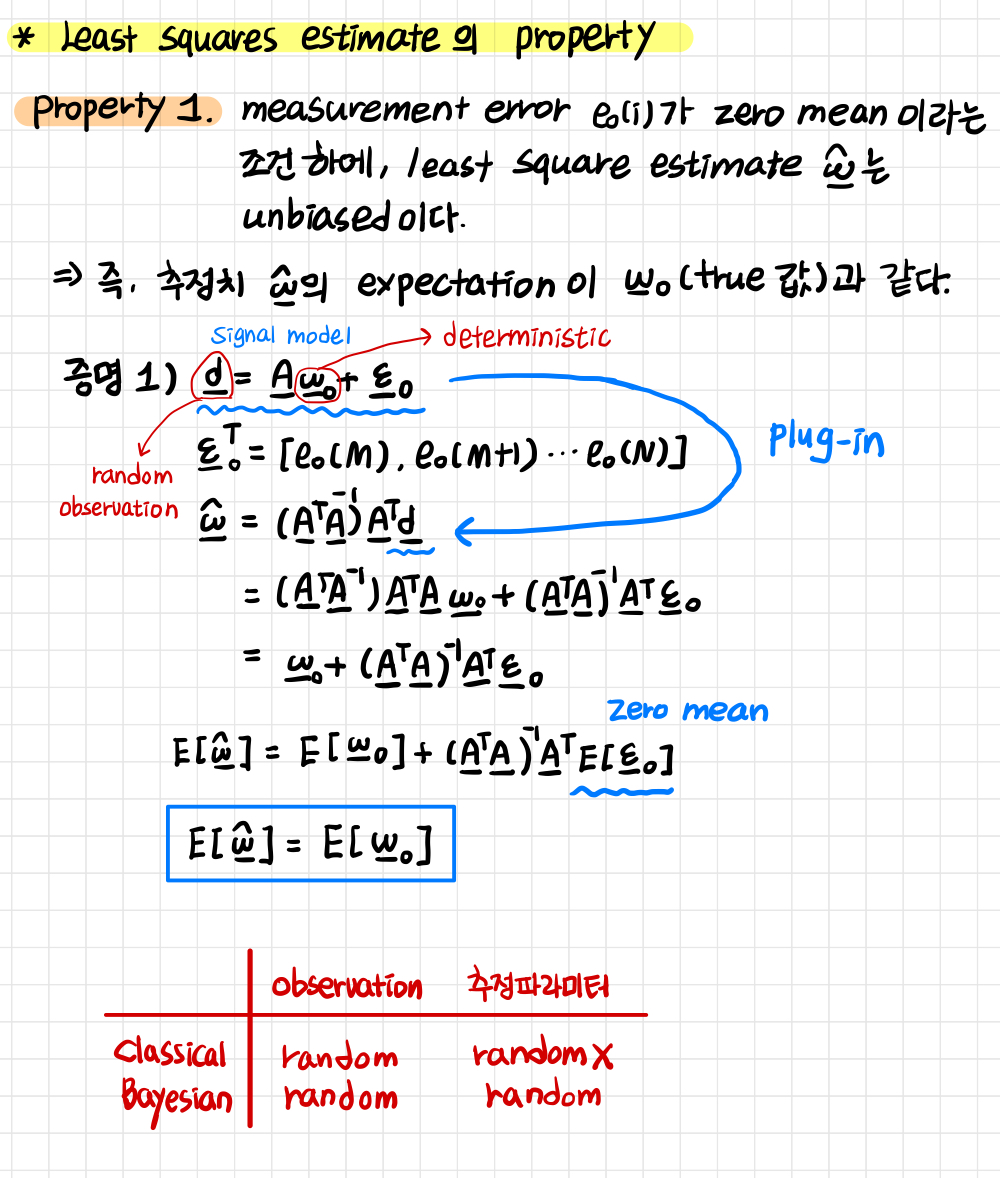 * Least squares estimate의 property
Property 1. measurement error e₀(i)가 zero mean 이라는
조건 하에, least square estimate ŵ는
unbiased이다.
⇒ 즉, 추정치 ŵ의 expectation이 w₀(true 값)과 같다.
Signal model → deterministic
증명 1) d = A w₀ + ε₀
plug-in
ε₀ᵀ = [e₀(M), e₀(M+1) ··· e₀(N)]
random
observation
ŵ = (AᵀA)⁻¹Aᵀd
= (AᵀA⁻¹)AᵀA w₀ + (AᵀA)⁻¹Aᵀε₀
= w₀ + (AᵀA)⁻¹Aᵀε₀
zero mean
E[ŵ] = E[w₀] + (AᵀA)⁻¹Aᵀ E[ε₀]
E[ŵ] = E[w₀]
observation 추정파라미터
Classical random random X
Bayesian random random